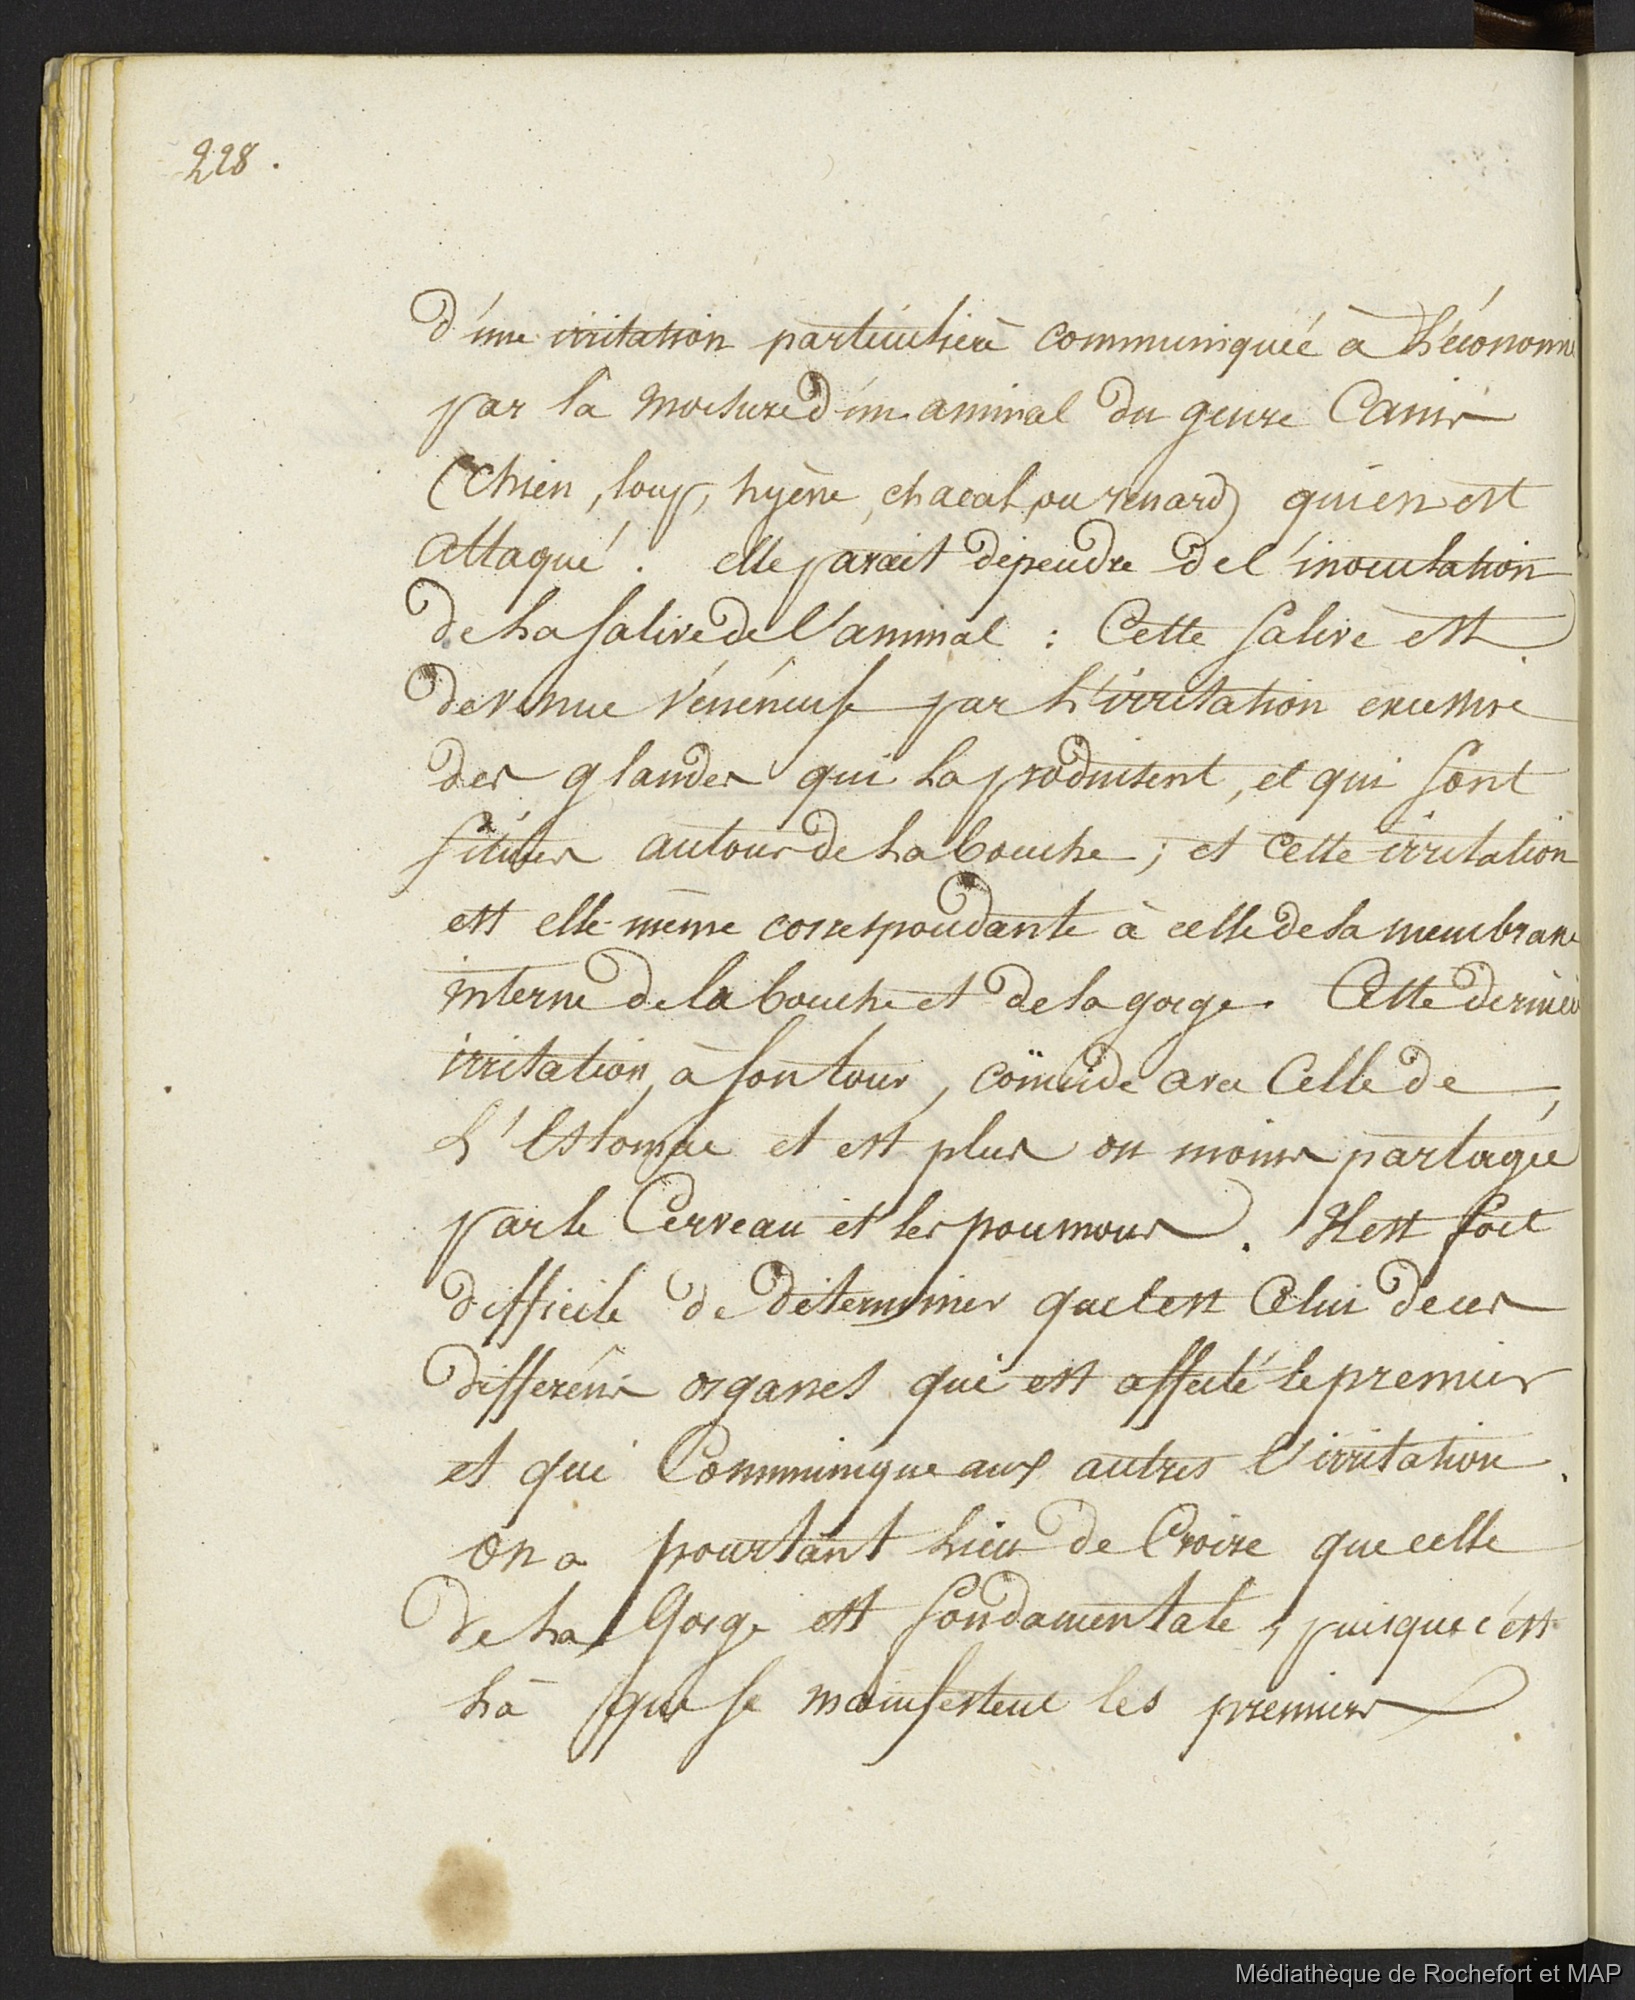 228.
d'une irritation particulière communiquée à l'économi
par la morsure d'un animal du genre Canis
(Chien, loup, hyène, chacal, ou renard) qui en est
attaqué. elle parait dépendre de l'inoculation
de la salive de l'animal : Cette salive est
devenue vénéneuse par l'irritation excessive
des glandes qui la produisent, et qui sont
situées autour de la bouche ; et cette irritation
est elle-même correspondante à celle de la membrane
interne de la bouche et de la gorge. Cette dernière
irritation, à son tour, coïncide avec Celle de
L'Estomac et est plus ou moins partagée
par le Cerveau et les poumons. Il est fort
difficile de déterminer quel est Celui de ces
différens organes qui est affecté le premier
et qui Communique aux autres l'irritation.
On a pourtant lieu de Croire que celle
de la Gorge est fondamentale, puisque c'est
là que se manifestent les premiers
Médiathèque de Rochefort et MAP